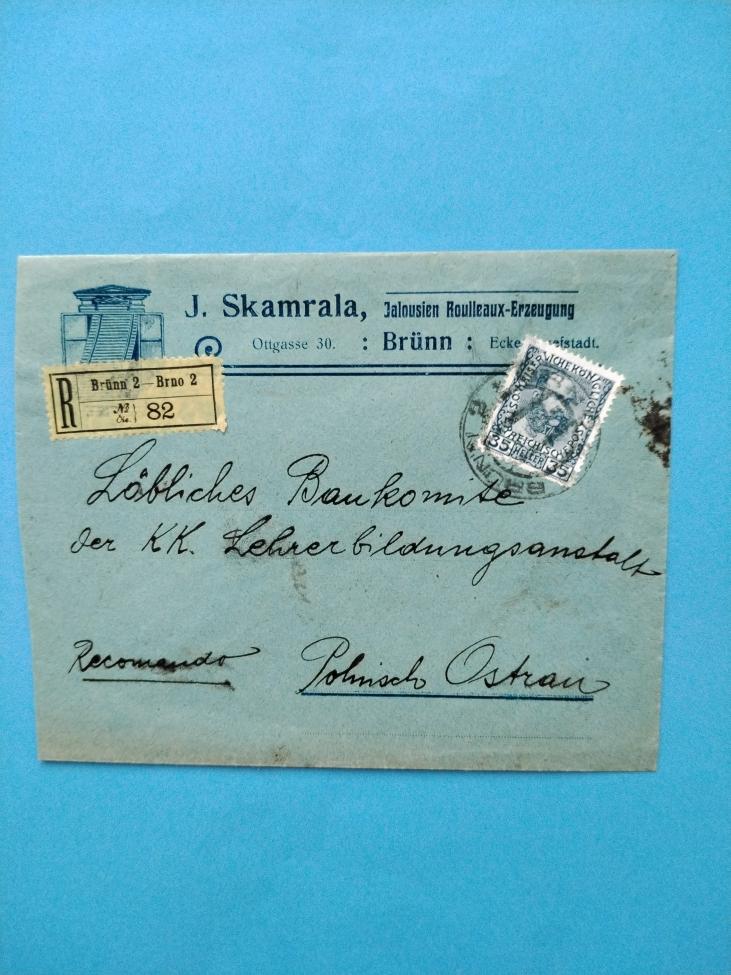 J. Skamrala, Jalousien Roulleaux-Erzeugung
Ottgasse 30. : Brünn : Ecke
R Brünn 2 — Brno 2
№ 82
KAISERLICHE KÖNIGLICHE
ÖSTERREICHISCHE POST
35 HELLER 35
Löbliches Baukomite
der KK. Lehrerbildungsanstalt
Recomando
Polnisch Ostrau